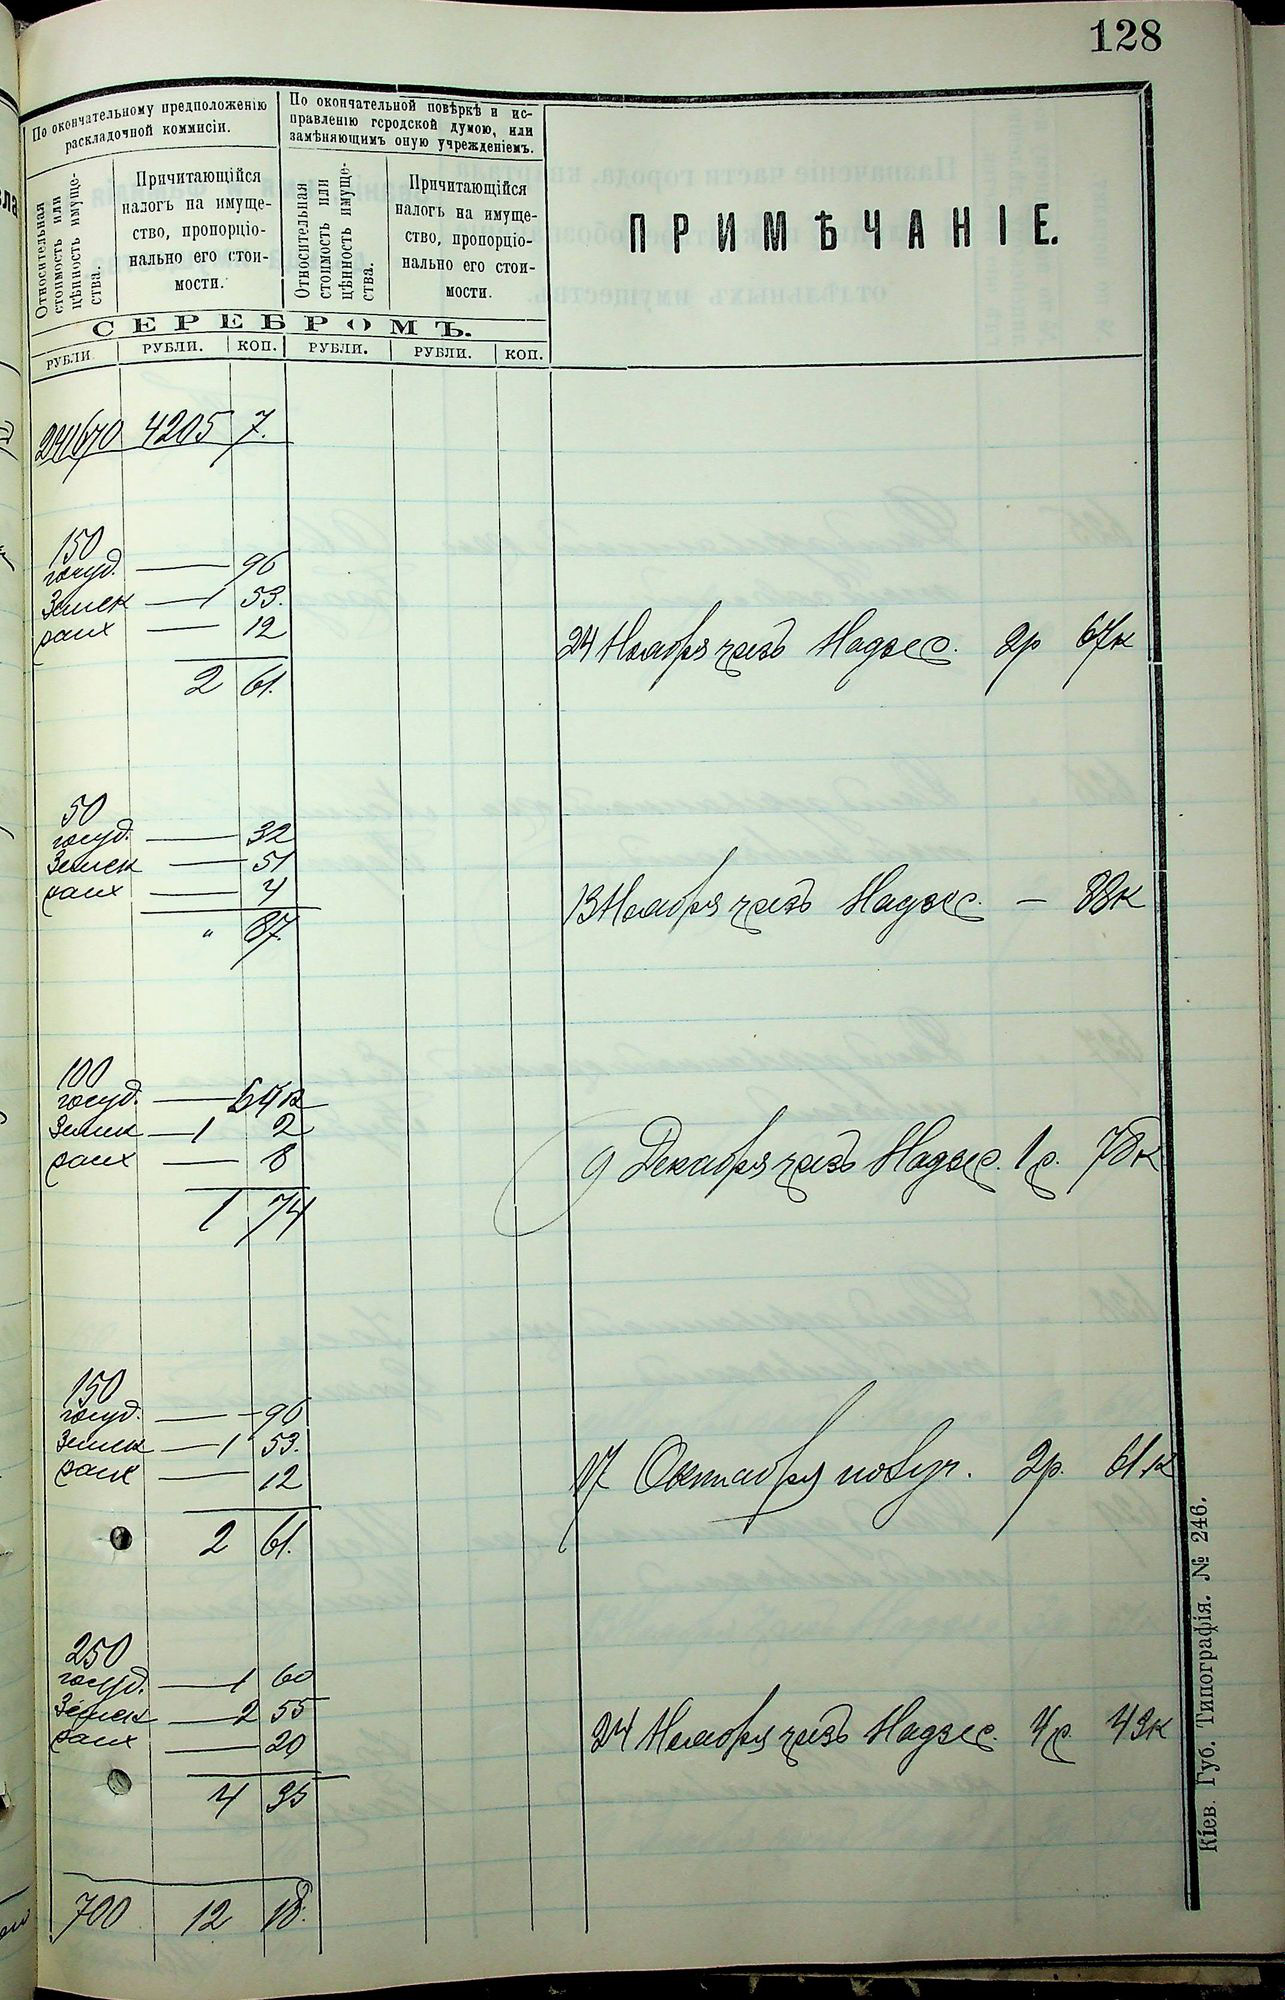 128
По окончательному предположенію
раскладочной коммисіи.
По окончательной повѣркѣ и ис-
правленію городской думою, или
замѣняющимъ оную учрежденіемъ.
Относительная
стоимость или
цѣнность имуще-
ства.
Причитающійся
налогъ на имуще-
ство, пропорціо-
нально его стои-
мости.
Относительная
стоимость или
цѣнность имуще-
ства.
Причитающійся
налогъ на имуще-
ство, пропорціо-
нально его стои-
мости.
ПРИМѢЧАНІЕ.
СЕРЕБРОМЪ.
РУБЛИ. РУБЛИ. КОП. РУБЛИ. РУБЛИ. КОП.
241670 4205 7.
150
госуд. — 96
Земск — 1 53.
12
24 Ноября чрезъ Надзес. 2р 67к
2 61.
50
госуд. — 32
Земск — 51
4
13 Ноября чрезъ Надзес. — 88к
" 87.
100
госуд. — 64к
Земск — 1 2
8
9 Декабря чрезъ Надзес. 1р. 78к
1 74
150
госуд. — 96
Земск — 1 53.
12
17 Октября 2р. 61к
2 61.
250
госуд. — 1 60
Земск — 2 55
20
24 Ноября чрезъ Надзес. 4р. 43к
4 35
700 12 18.
Кіев. Губ. Типографія. № 246.